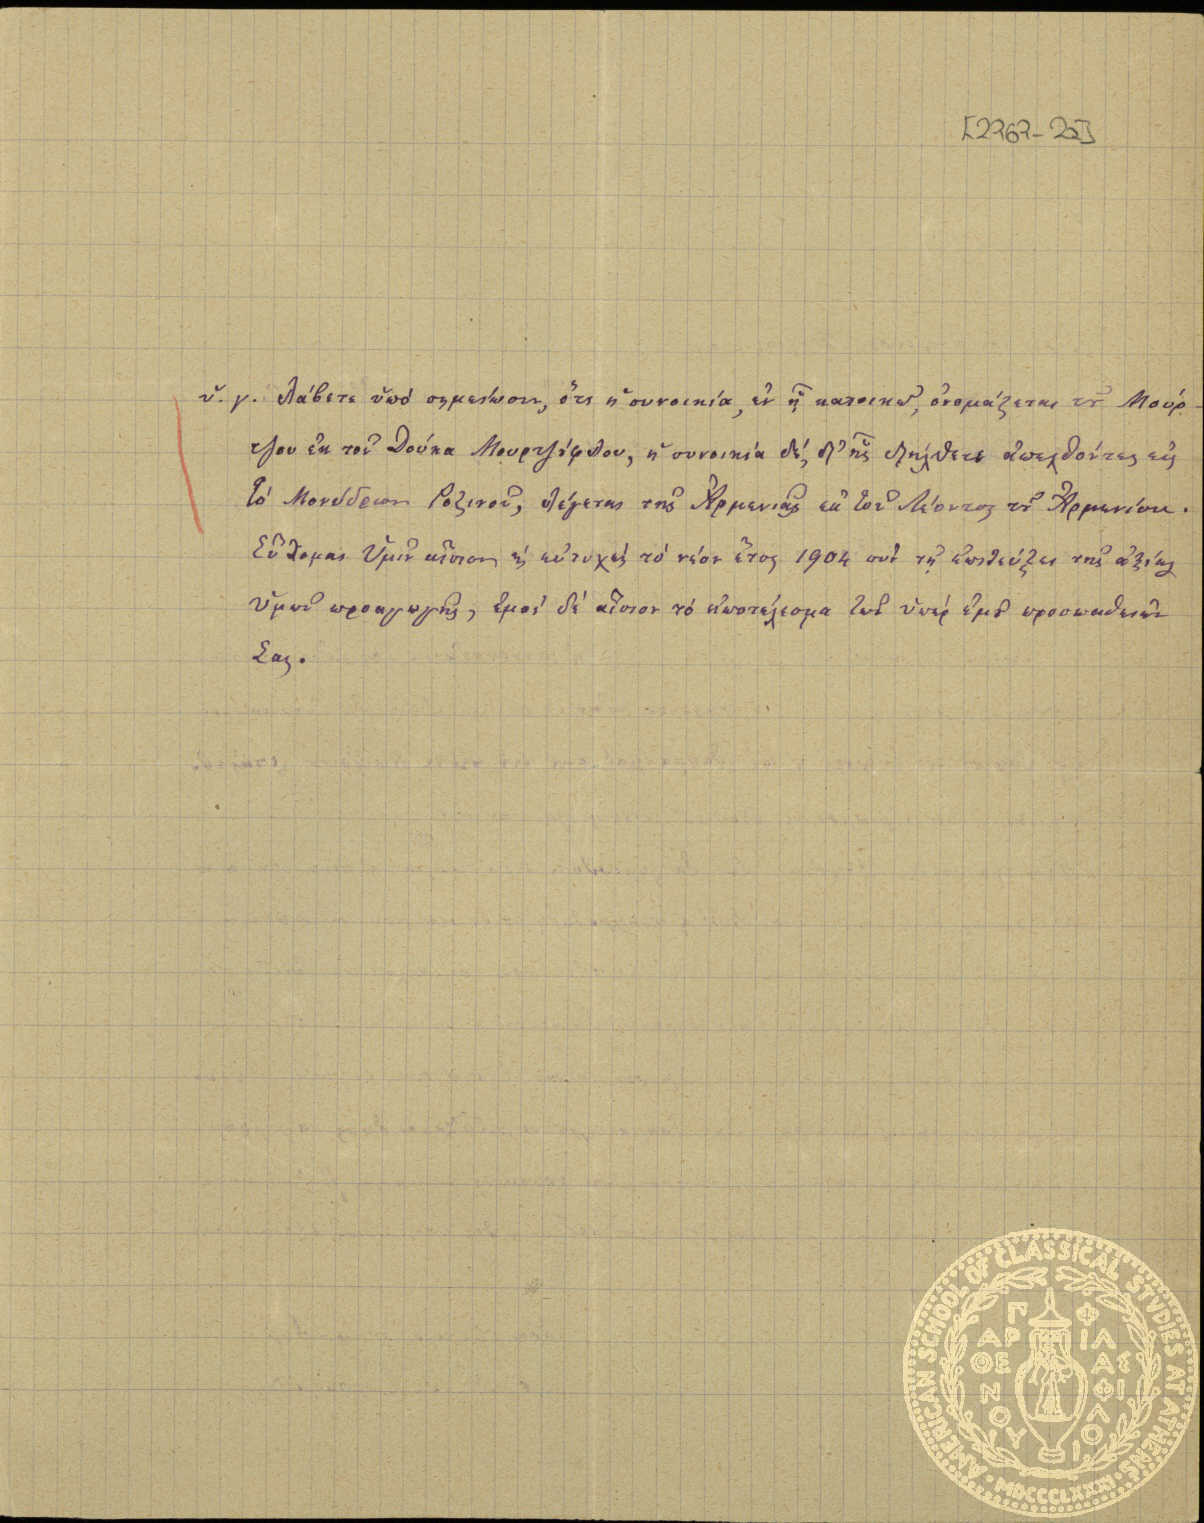 [2767-25]
ὑ. γ. Λάβετε ὑπό σημείωσιν, ὅτι ἡ συνοικία, ἐν ᾗ κατοικῶ, ὀνομάζεται τοῦ Μούρ-
τζου ἐκ τοῦ Δούκα Μουρτζούφλου, ἡ συνοικία δέ, δι' ἧς διήλθετε ἀπελθόντες εἰς
τό Μονύδριον Ροζινοῦ, λέγεται τῆς Ἀρμενιᾶς ἐκ τοῦ Λέοντος τοῦ Ἀρμενίου.
Εὔχομαι Ὑμῖν αἴσιον κ' εὐτυχές τό νέον ἔτος 1904 σύν τῇ ἐπιτεύξει τῆς ἀξίας
Ὑμῶν προαγωγῆς, ἐμοί δέ αἴσιον τό ἀποτέλεσμα τῶν ὑπέρ ἐμοῦ προσπαθειῶν
Σας.
AMERICAN SCHOOL OF CLASSICAL STVDIES AT ATHENS · MDCCCLXXXI ·
ΠΑΡΘΕΝΟΥ ΦΙΛΑΣ ΦΙΛΟΙ